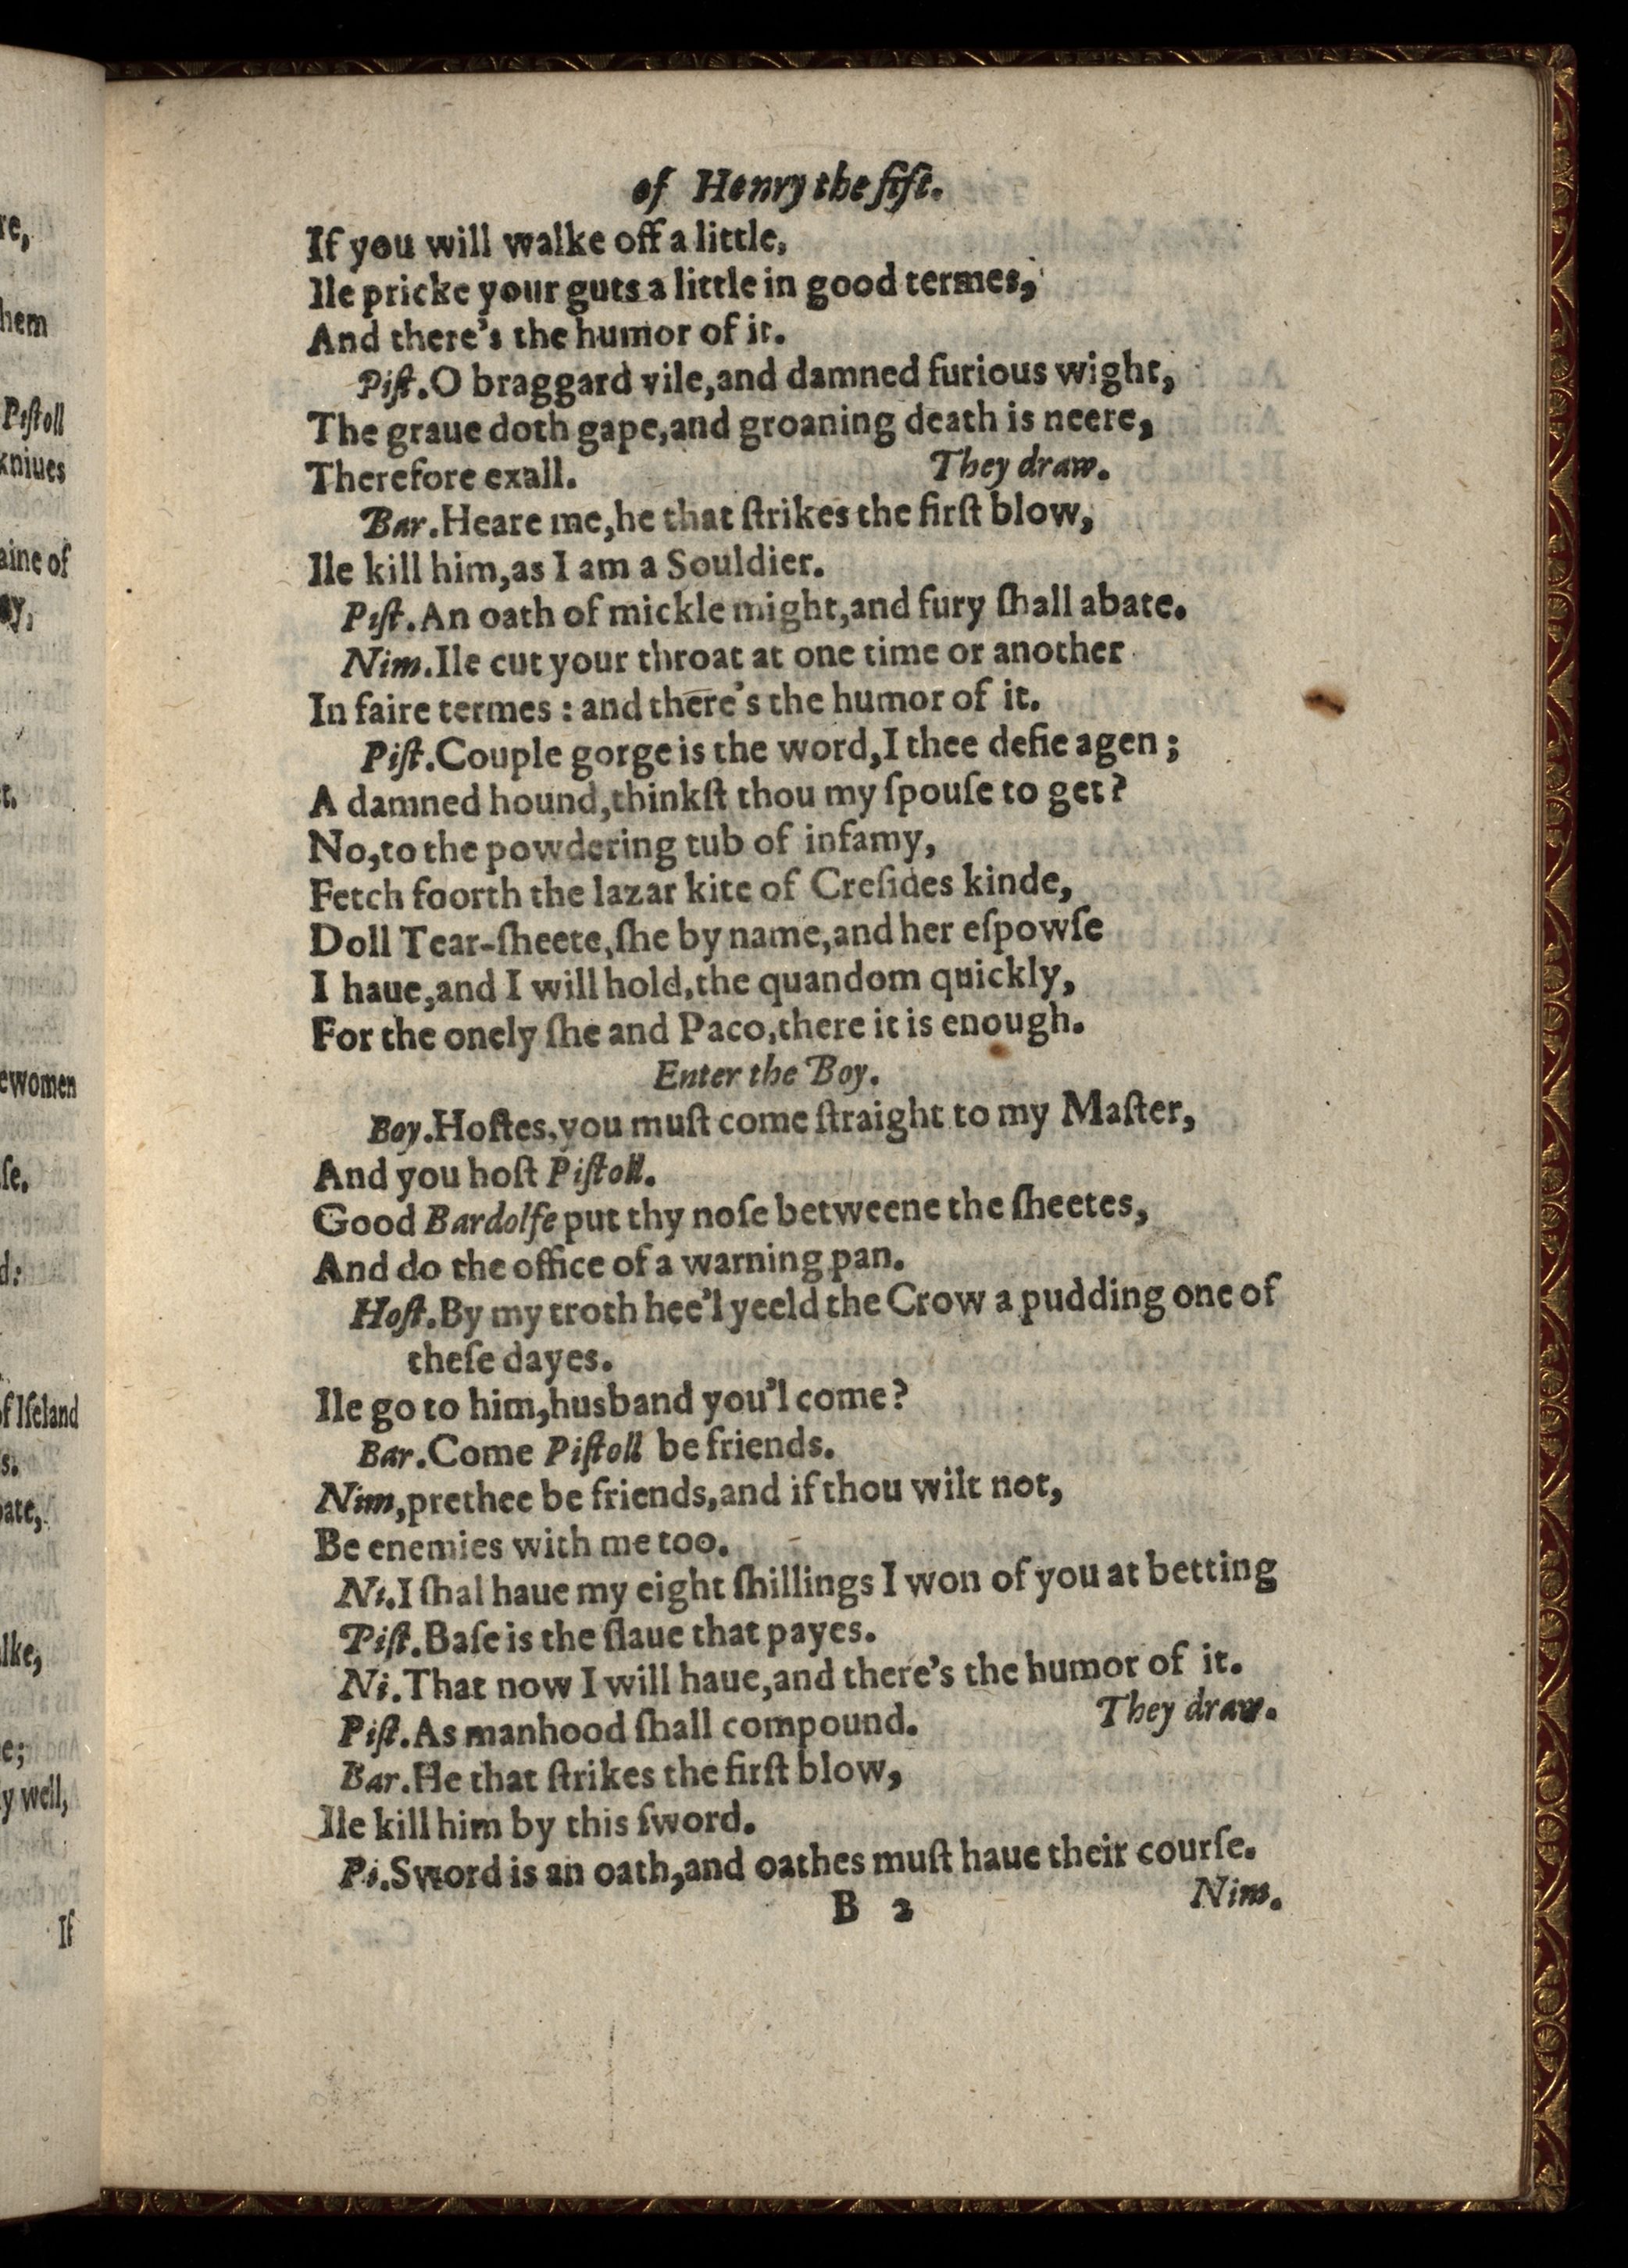 of Henry the fift.
If you will walke off a little,
Ile pricke your guts a little in good termes,
And there's the humor of it.
Piſt.O braggard vile,and damned furious wight,
The graue doth gape,and groaning death is neere,
Therefore exall. They draw.
Bar.Heare me,he that ſtrikes the firſt blow,
Ile kill him,as I am a Souldier.
Piſt.An oath of mickle might,and fury ſhall abate.
Nim.Ile cut your throat at one time or another
In faire termes : and there's the humor of it.
Piſt.Couple gorge is the word,I thee defie agen ;
A damned hound,thinkſt thou my ſpouſe to get?
No,to the powdering tub of infamy,
Fetch foorth the lazar kite of Creſides kinde,
Doll Tear-ſheete,ſhe by name,and her eſpowſe
I haue,and I will hold,the quandom quickly,
For the onely ſhe and Paco,there it is enough.
Enter the Boy.
Boy.Hoſtes,you muſt come ſtraight to my Maſter,
And you hoſt Piſtoll.
Good Bardolfe put thy noſe betweene the ſheetes,
And do the office of a warning pan.
Hoſt.By my troth hee'l yeeld the Crow a pudding one of
theſe dayes.
Ile go to him,husband you'l come?
Bar.Come Piſtoll be friends.
Nim,prethee be friends,and if thou wilt not,
Be enemies with me too.
Ni.I ſhal haue my eight ſhillings I won of you at betting
Piſt.Baſe is the ſlaue that payes.
Ni.That now I will haue,and there's the humor of it.
Piſt.As manhood ſhall compound. They draw.
Bar.He that ſtrikes the firſt blow,
Ile kill him by this ſword.
Pi.Sword is an oath,and oathes muſt haue their courſe.
B 2 Nim.
hem
Piſtoll
kniues
aine of
ewomen
of Iſeland
y well,
If